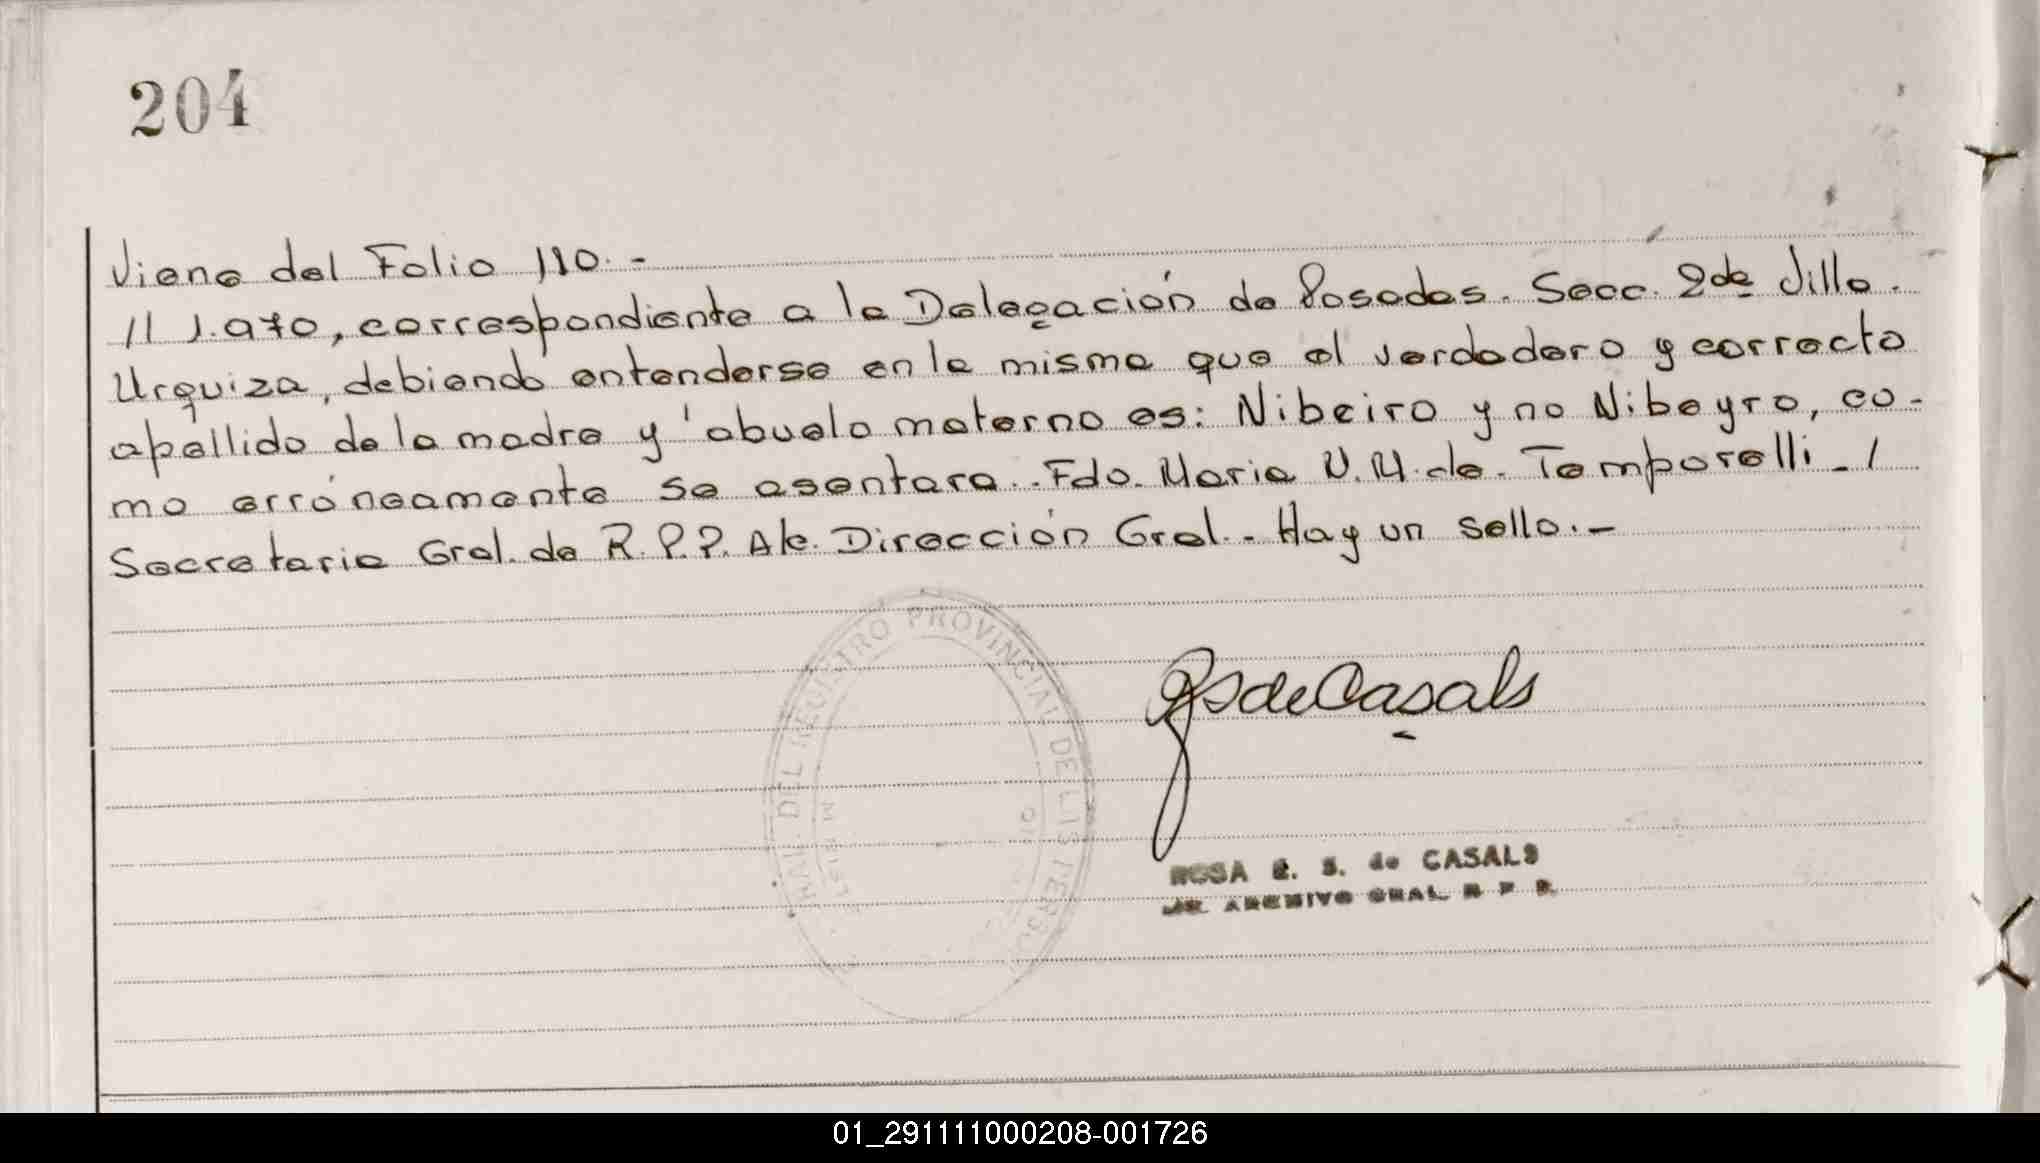 204
Viene del Folio 110.-
// 1.970, correspondiente a la Delegación de Posadas. Secc. 2da Villa.
Urquiza, debiendo entenderse en la misma que el verdadero y correcto
apellido de la madre y abuelo materno es: Nibeiro y no Nibeyro, co-
mo erróneamente se asentara.. Fdo. Maria N.M. de. Temporelli_/
Secretaria Gral. de R.P.P. A/c. Dirección Gral.- Hay un sello.-
RAL. DEL REGISTRO PROVINCIAL DE LAS PERSO
MISI
RS de Casals
ROSA E. S. de CASALS
ARCHIVO GRAL. R P P.
01_291111000208-001726